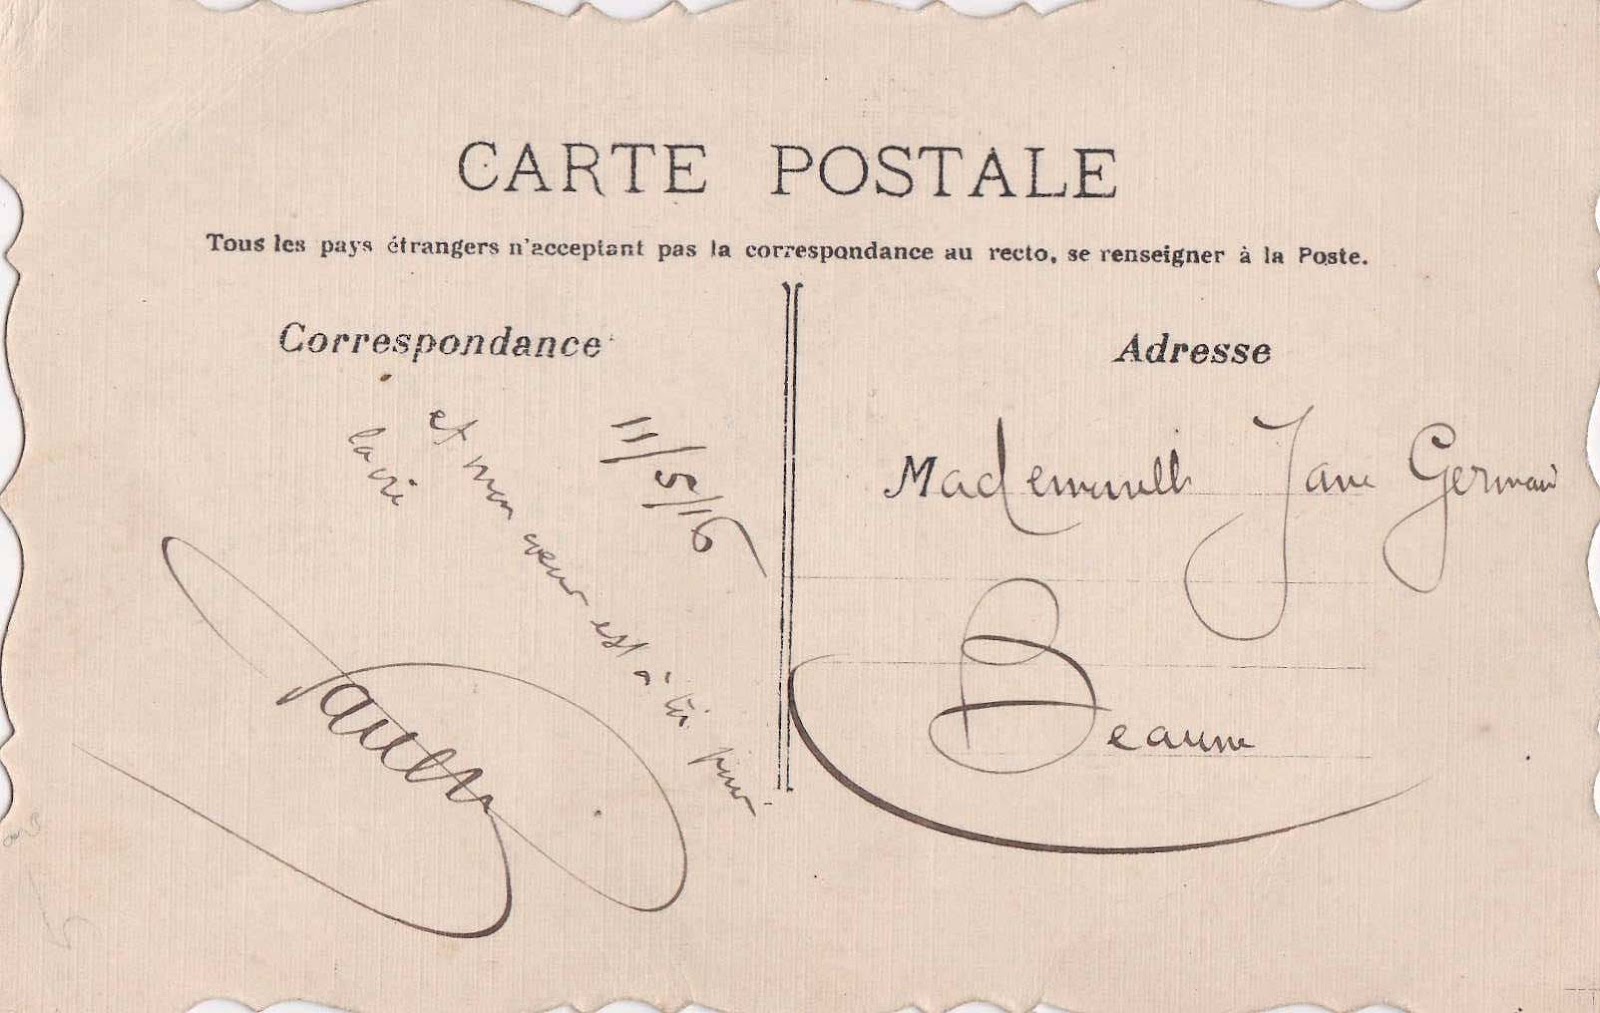 CARTE POSTALE
Tous les pays étrangers n'acceptant pas la correspondance au recto, se renseigner à la Poste.
Correspondance
11/5/16
et mon cœur est à toi pour
la vie
Adresse
Mademoiselle Jane Germain
Beaune